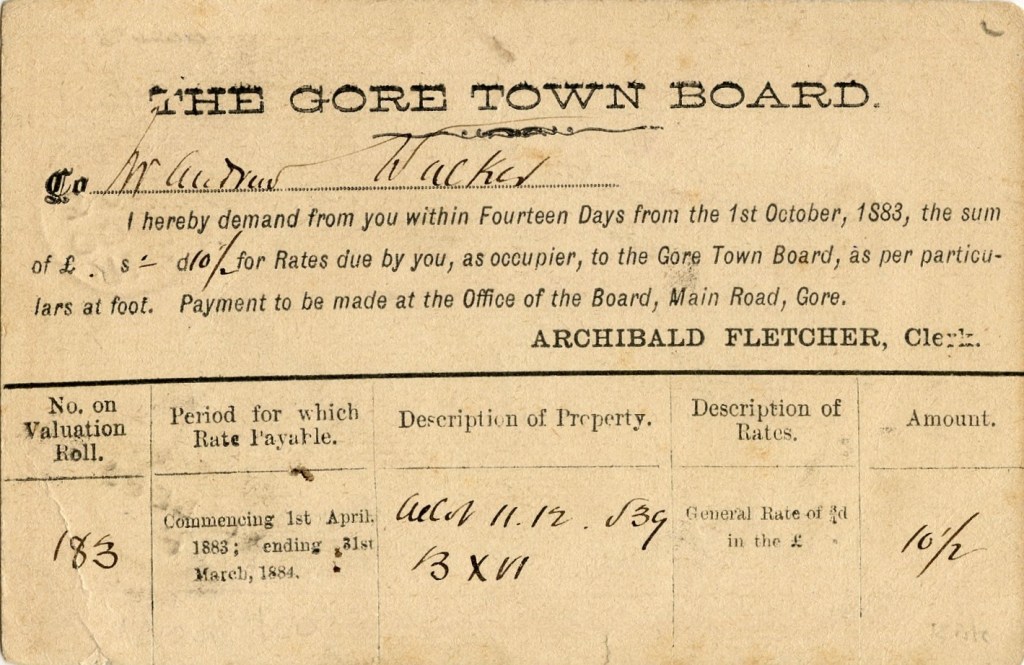 THE GORE TOWN BOARD.
To Mr Andrew Walker
I hereby demand from you within Fourteen Days from the 1st October, 1883, the sum
of £ . s - d10½ for Rates due by you, as occupier, to the Gore Town Board, as per particu-
lars at foot. Payment to be made at the Office of the Board, Main Road, Gore.
ARCHIBALD FLETCHER, Clerk.
No. on Valuation Roll.
Period for which Rate Payable.
Description of Property.
Description of Rates.
Amount.
183
Commencing 1st April, 1883; ending 31st March, 1884.
11.12.
B XVI
General Rate of ¾d in the £
10½